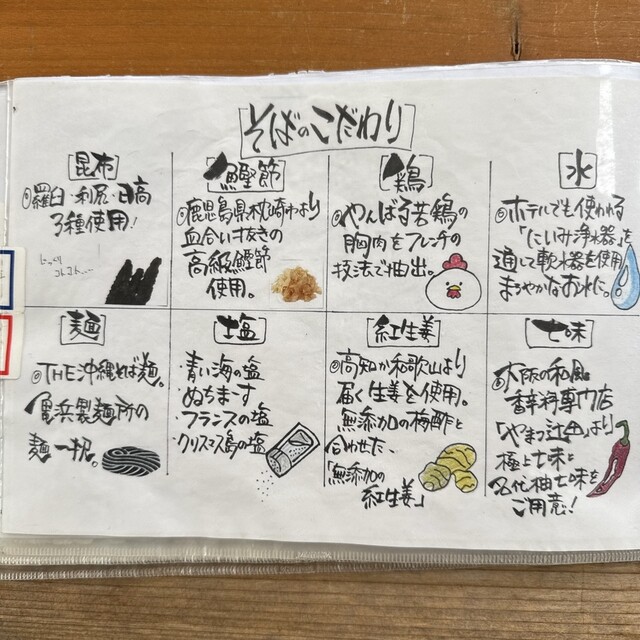 そばのこだわり
昆布
◎羅臼・利尻・日高
3種使用!
鰹節
◎鹿児島県枕崎市より
血合い抜きの
高級鰹節
使用。
鶏
◎やんばる若鶏の
胸肉をフレンチの
技法で抽出。
水
◎ホテルでも使われる
「にいみ浄水器」を
通して軟水器を使用
まろやかなお水に。
麺
◎THE沖縄そば麺。
亀浜製麺所の
麺一択。
塩
・青い海の塩
・ぬちまーす
・フランスの塩
・クリスマス島の塩
紅生姜
◎高知か和歌山より
届く生姜を使用。
無添加の梅酢と
合わせた、
「無添加の
紅生姜」
七味
◎大阪の和風
香辛料専門店
「やまつ辻田」より
極上七味と
名代柚七味を
ご用意!